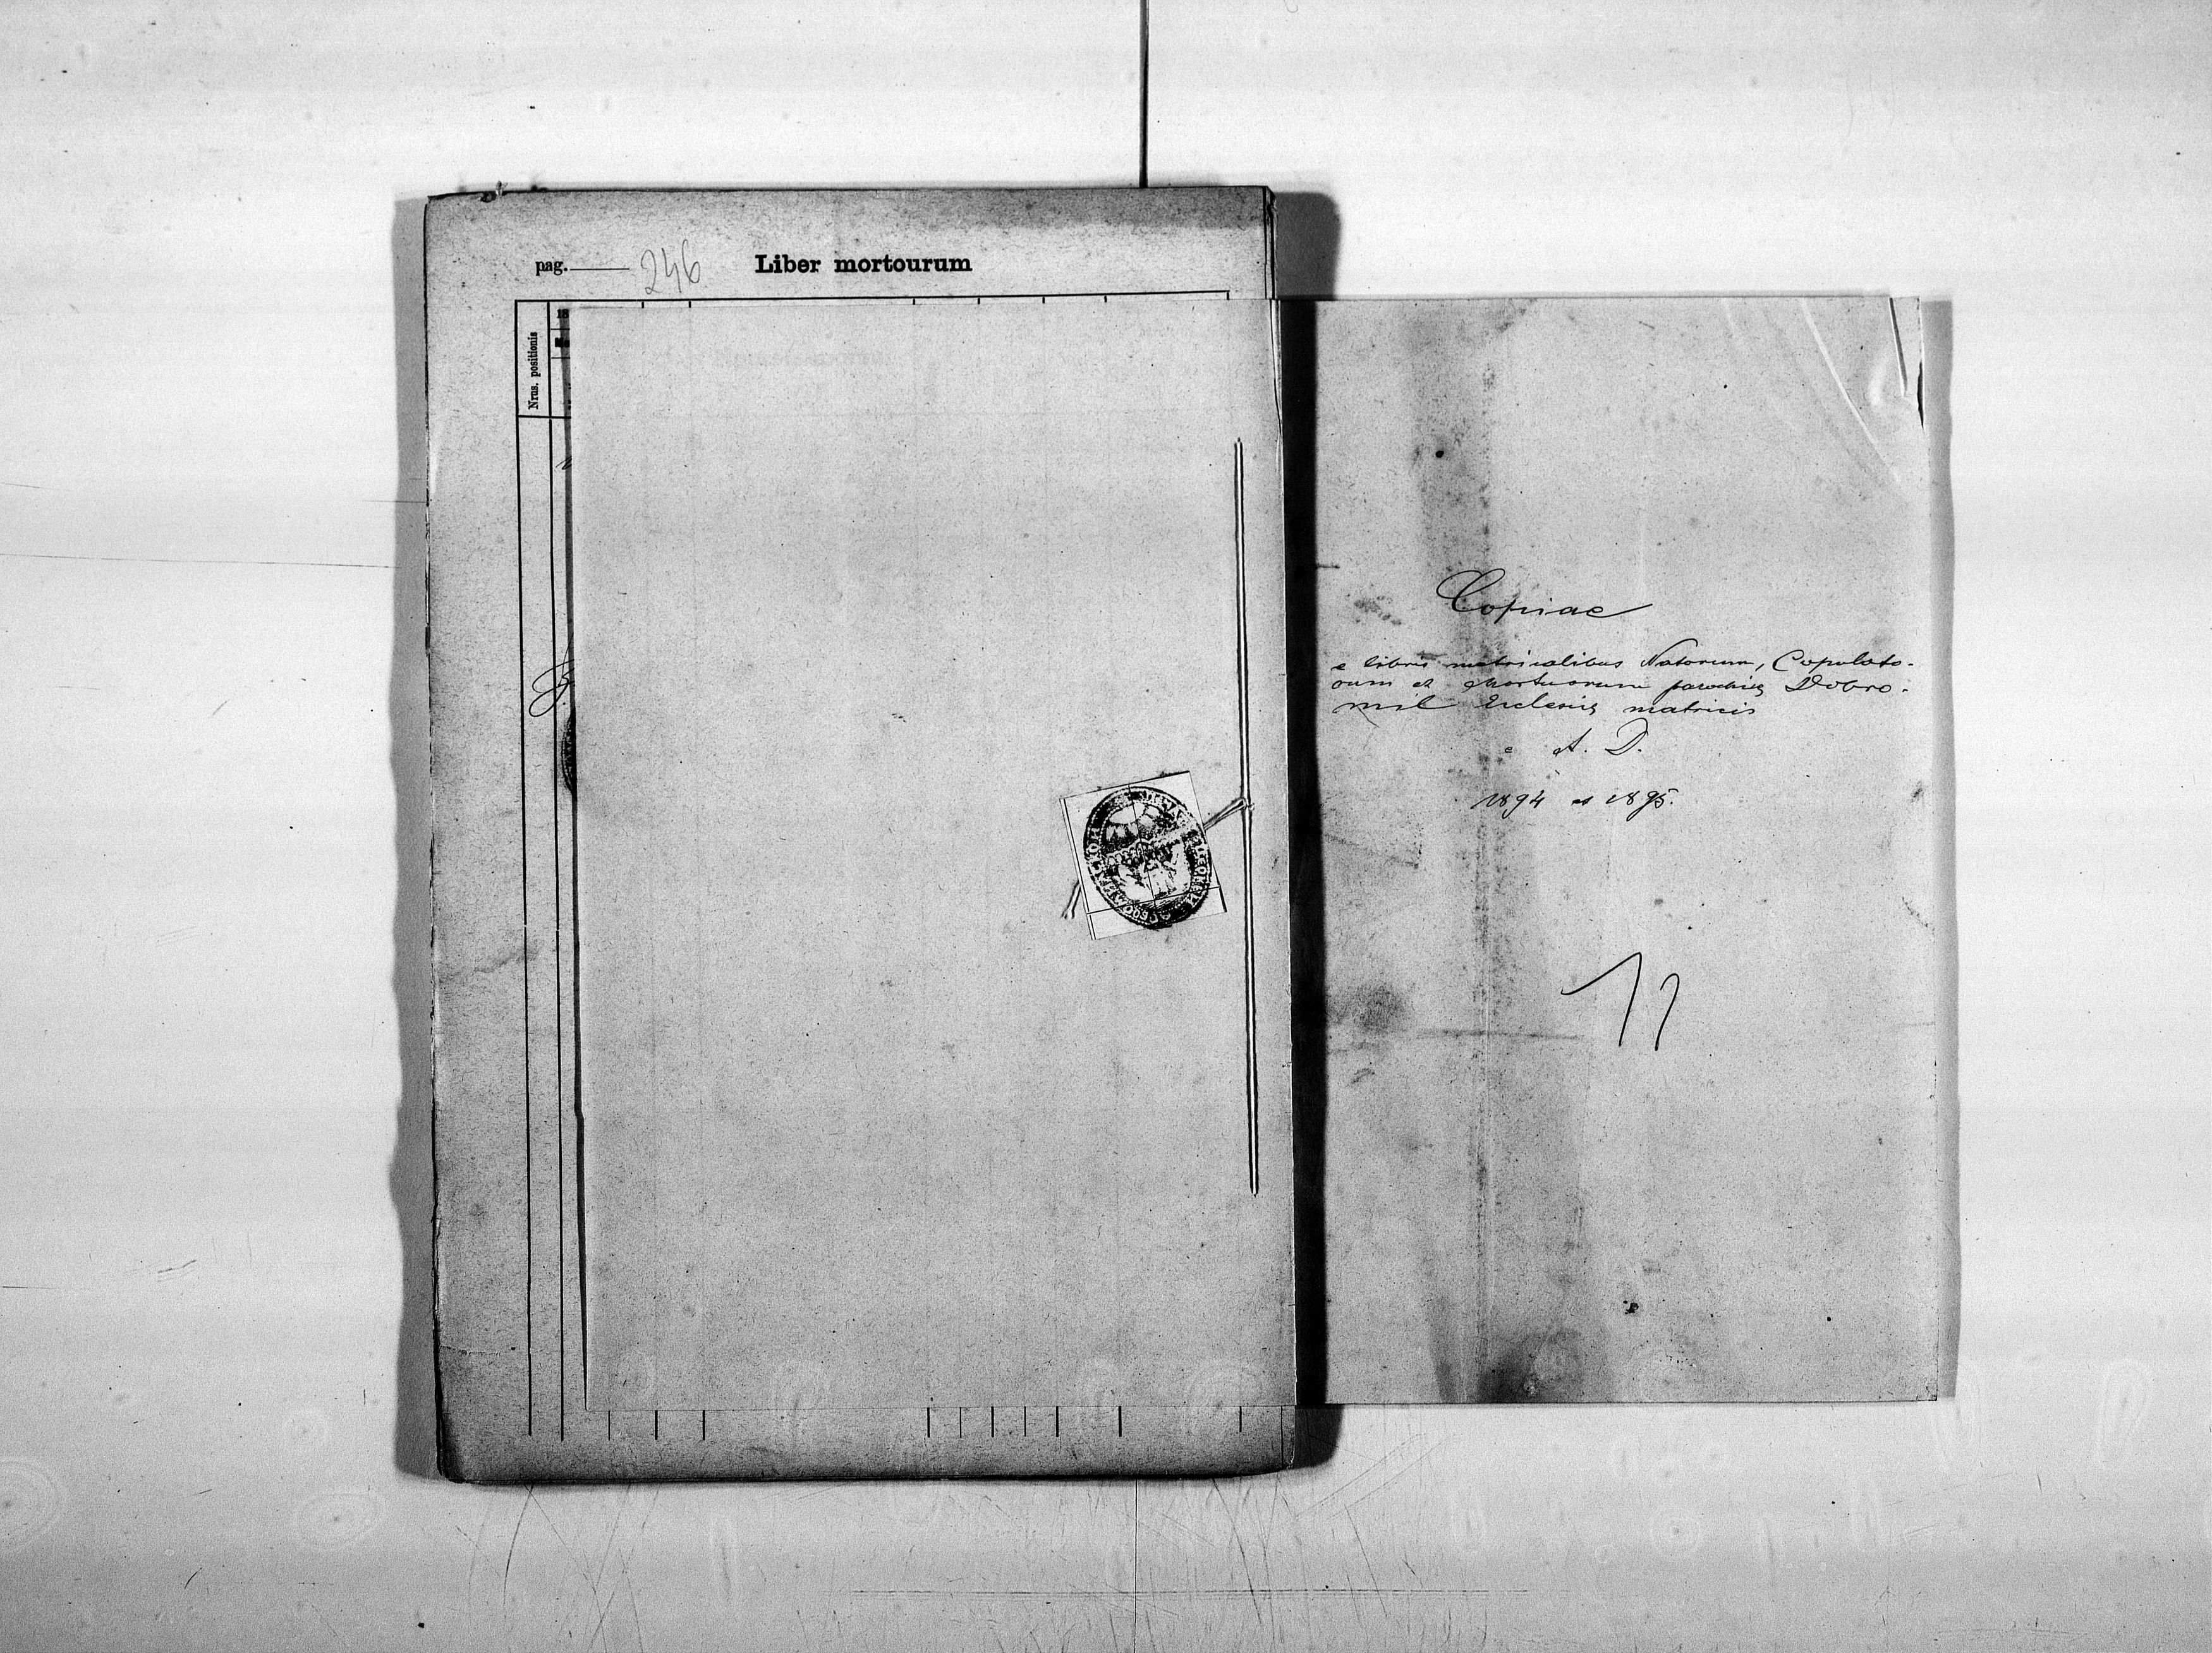 pag. 246 Liber mortourum
Nrus. positionis
18
Copiae
e libris metricalibus Natorum, Copulato-
rum et Mortuorum parochię Dobro-
mil Ecclesię matricis
e A. D.
1894 et 1895.